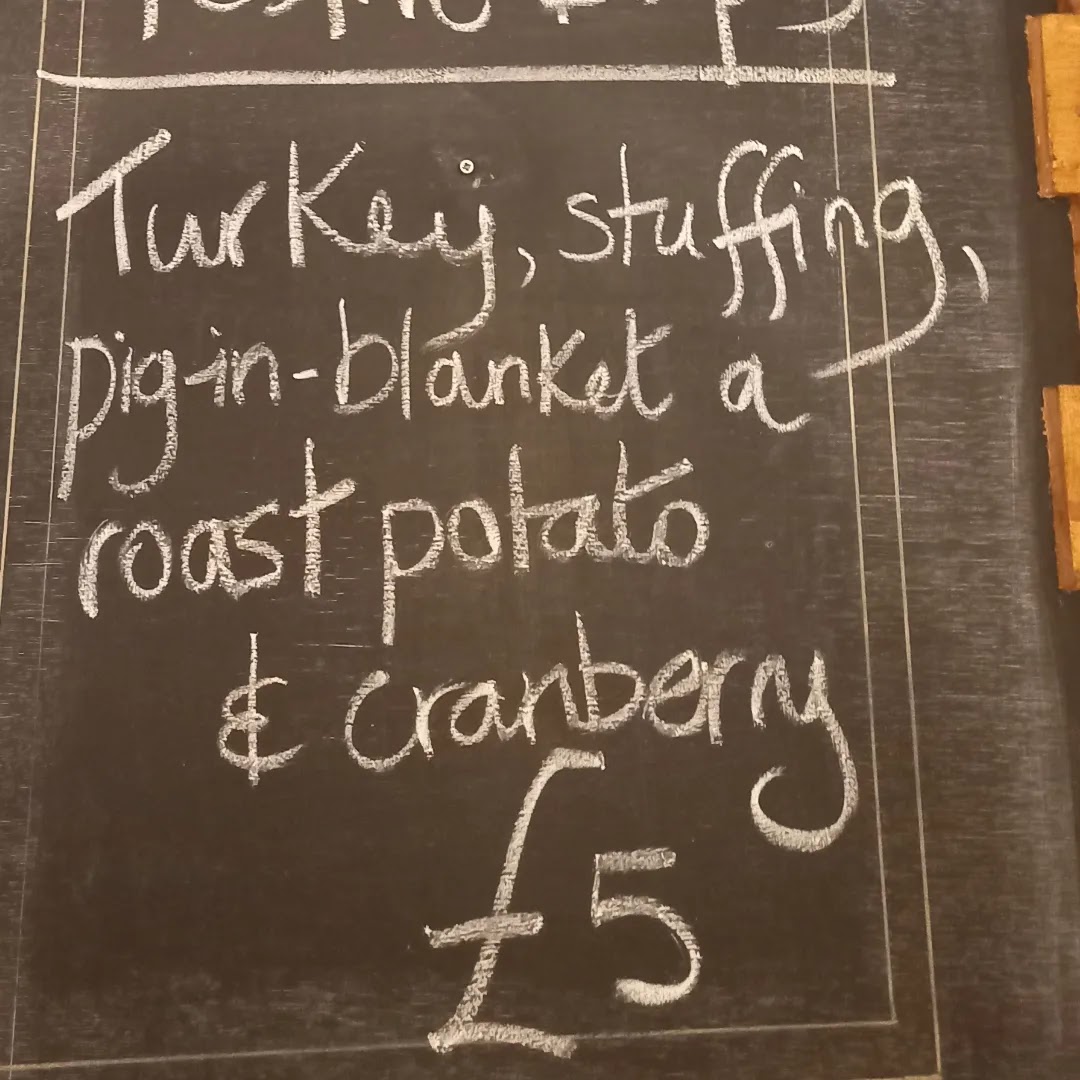 Turkey, stuffing,
pig-in-blanket a
roast potato
& cranberry
£5